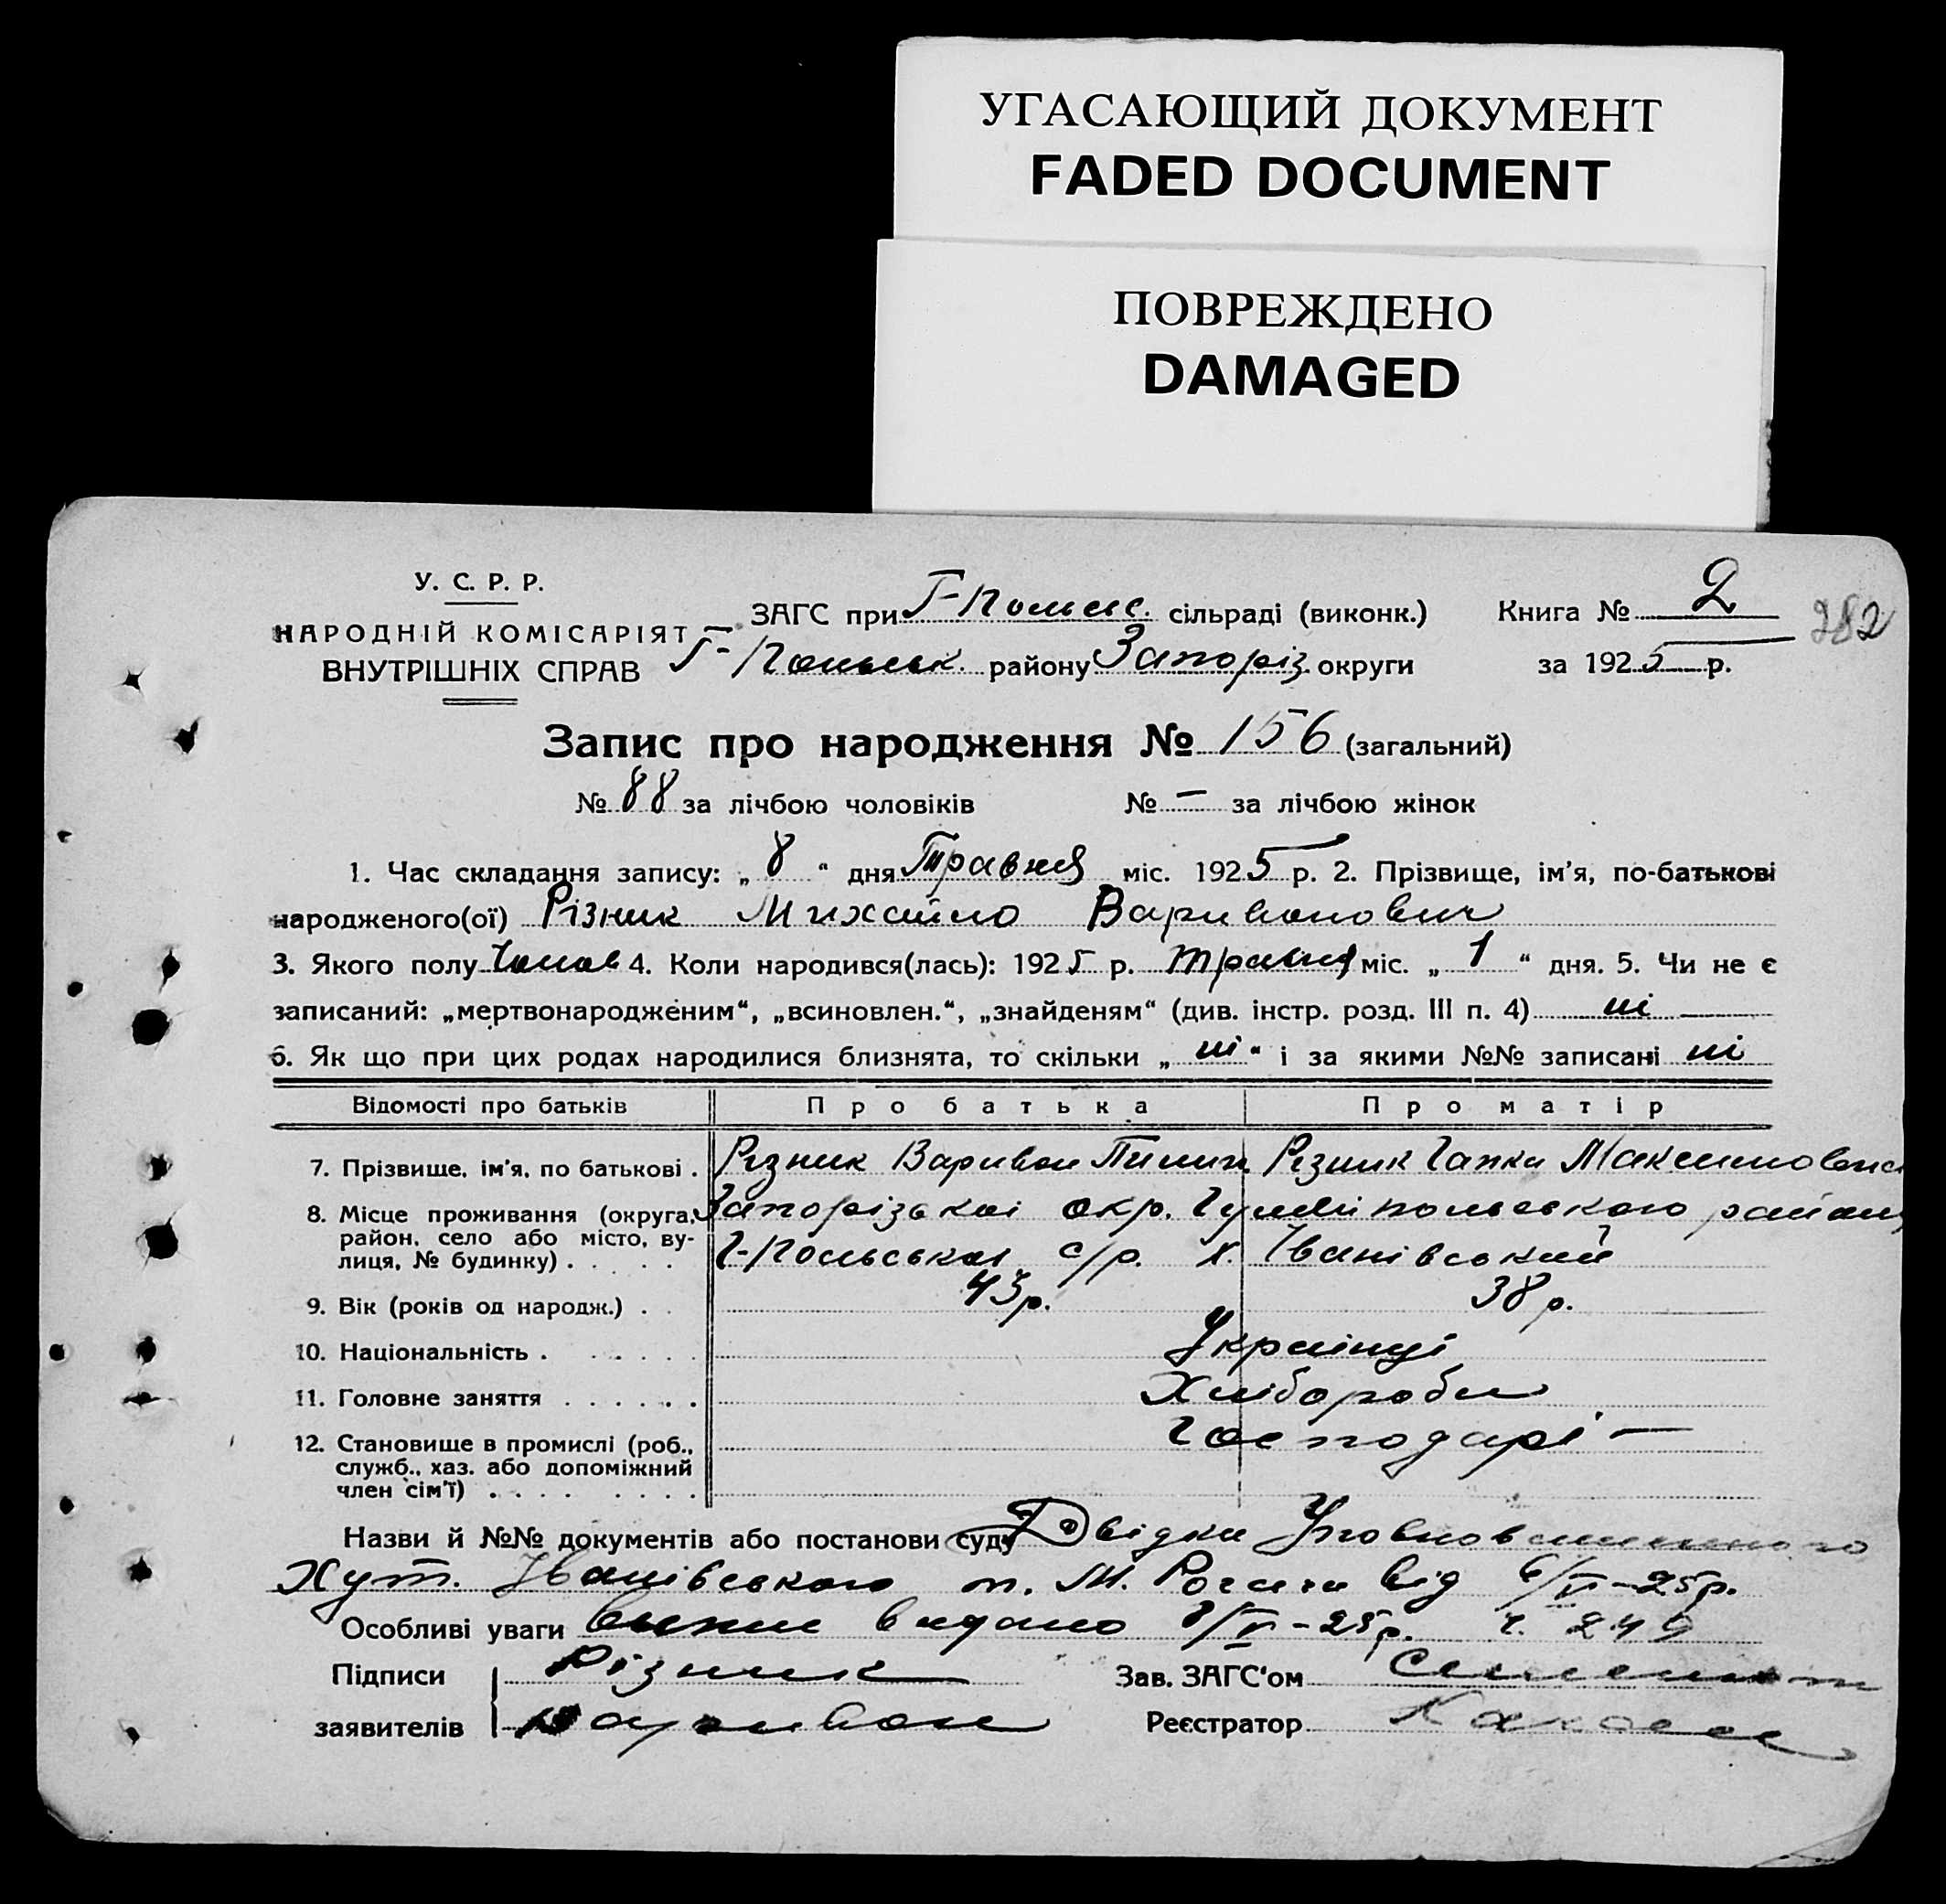 УГАСАЮЩИЙ ДОКУМЕНТ
FADED DOCUMENT
ПОВРЕЖДЕНО
DAMAGED
У. С. Р. Р.
НАРОДНІЙ КОМІСАРІЯТ
ВНУТРІШНІХ СПРАВ
ЗАГС при Г-Польс. сільраді (виконк.)
Г-Польськ. району Запоріз округи
Книга № 2
282
за 1925 р.
Запис про народження № 156 (загальний)
№ 88 за лічбою чоловіків № — за лічбою жінок
1. Час складання запису: „ 8 “ дня Травня міс. 1925 р. 2. Прізвище, ім'я, по-батькові
народженого(ої) Різник МихайлоВаривонович
3. Якого полу Чолов 4. Коли народився(лась): 1925 р. травня міс. „ 1 “ дня. 5. Чи не є
записаний: „мертвонародженим“, „всиновлен.“, „знайденям“ (див. інстр. розд. III п. 4) ні
6. Як що при цих родах народилися близнята, то скільки „ ні “ і за якими №№ записані ні
Відомості про батьків Про батька Про матір
7. Прізвище, ім'я, по батькові . Різник Варивон Пилип Різник Гапка Максимовна
8. Місце проживання (округа, район, село або місто, вулиця, № будинку) . . . . . Запорізькоі окр. Гуляйпольського району
Г-Польськоі с/р. х. Іванівський
9. Вік (років од народж.) . . 43 р. 38 р.
10. Національність . . . . . . Украінці
11. Головне заняття . . . . . . Хлібороби
12. Становище в промислі (роб., служб., хаз. або допоміжний член сім'ї) . . . . . . . . Господарі —
Назви й №№ документів або постанови суду Довідка Уповноваженного
Хут. Іванівського т. М. Рогачи від 6/V-25р.
Особливі уваги видано 8/V-25р. ч. 249
Підписи Різник Зав. ЗАГС'ом
заявителів Варивон Реєстратор